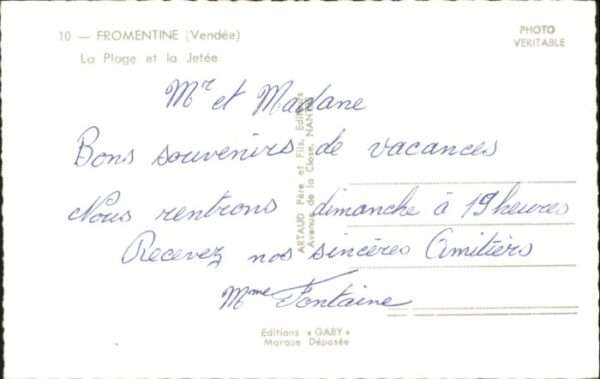 10 — FROMENTINE (Vendée)
La Plage et la Jetée
PHOTO
VERITABLE
Mr et Madane
Bons souvenirs de vacances
Nous rentrons dimanche à 19 heures
Recevez nos sincères Amitiers
Mme Fontaine
ARTAUD Père et Fils, Editeurs
Avenue de la Close, NANTES
Editions « GABY »
Marque Déposée